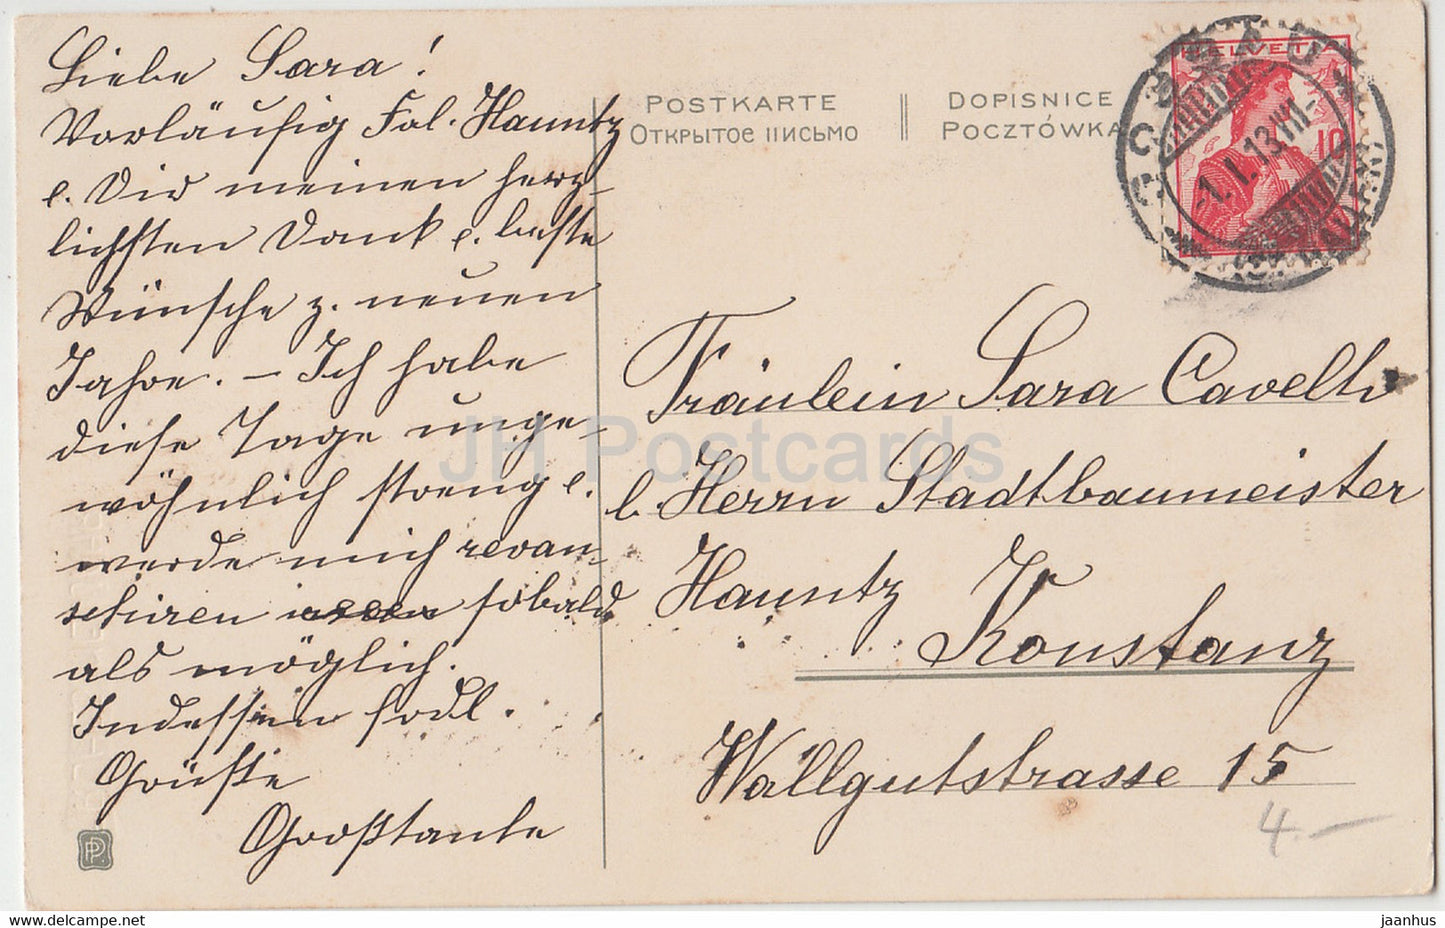 Liebe Sara!
Vorläufig Frl. Hauntz
u. Dir meinen herz-
lichsten Dank u. beste
Wünsche z. neuen
Jahre. – Ich habe
diese Tage unge-
wöhnlich streng u.
werde mich revan-
schiren sobald
als möglich.
Indessen frdl.
Grüße
Großtante
POSTKARTE
ОТКРЫТОЕ ПИСЬМО
DOPISNICE
POCZTÓWKA
HELVETIA
10
GOSSAU
1.I.13.VII-
Fräulein Sara Cavelti
b. Herrn Stadtbaumeister
Hauntz Konstanz
Wallgutstrasse 15
4.–
PP
JH Postcards
jaanhus.com